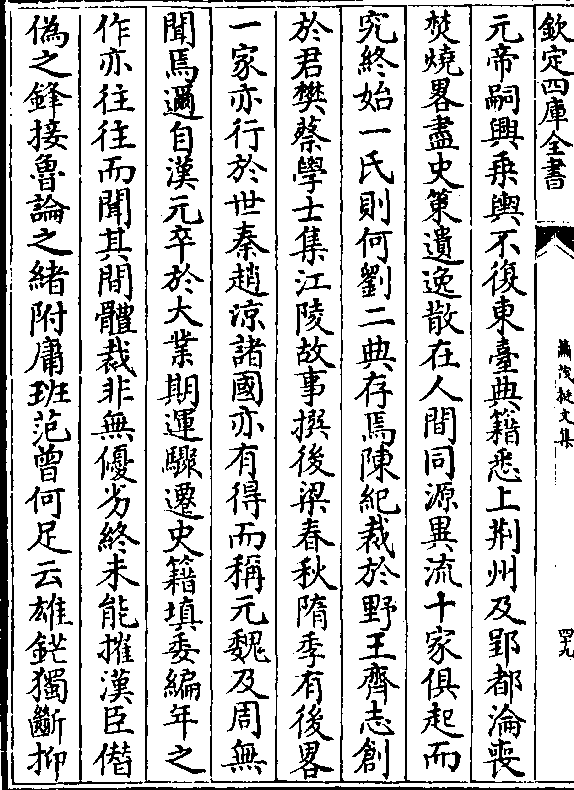 欽定四庫全書
蕭茂挺文集
四九
元帝嗣興乘輿不復東臺典籍悉上荆州及郢都淪喪
焚燒畧盡史策遺逸散在人間同源異流十家俱起而
究終始一氏則何劉二典存焉陳紀裁於野王齊志創
於君樊蔡學士集江陵故事撰後梁春秋隋季有後畧
一家亦行於世秦趙涼諸國亦有得而稱元魏及周無
聞焉邇自漢元卒於大業期運驟遷史籍填委編年之
作亦往往而聞其間體裁非無優劣終未能摧漢臣僭
偽之鋒接魯論之緒附庸班范曾何足云雄鋩獨斷抑